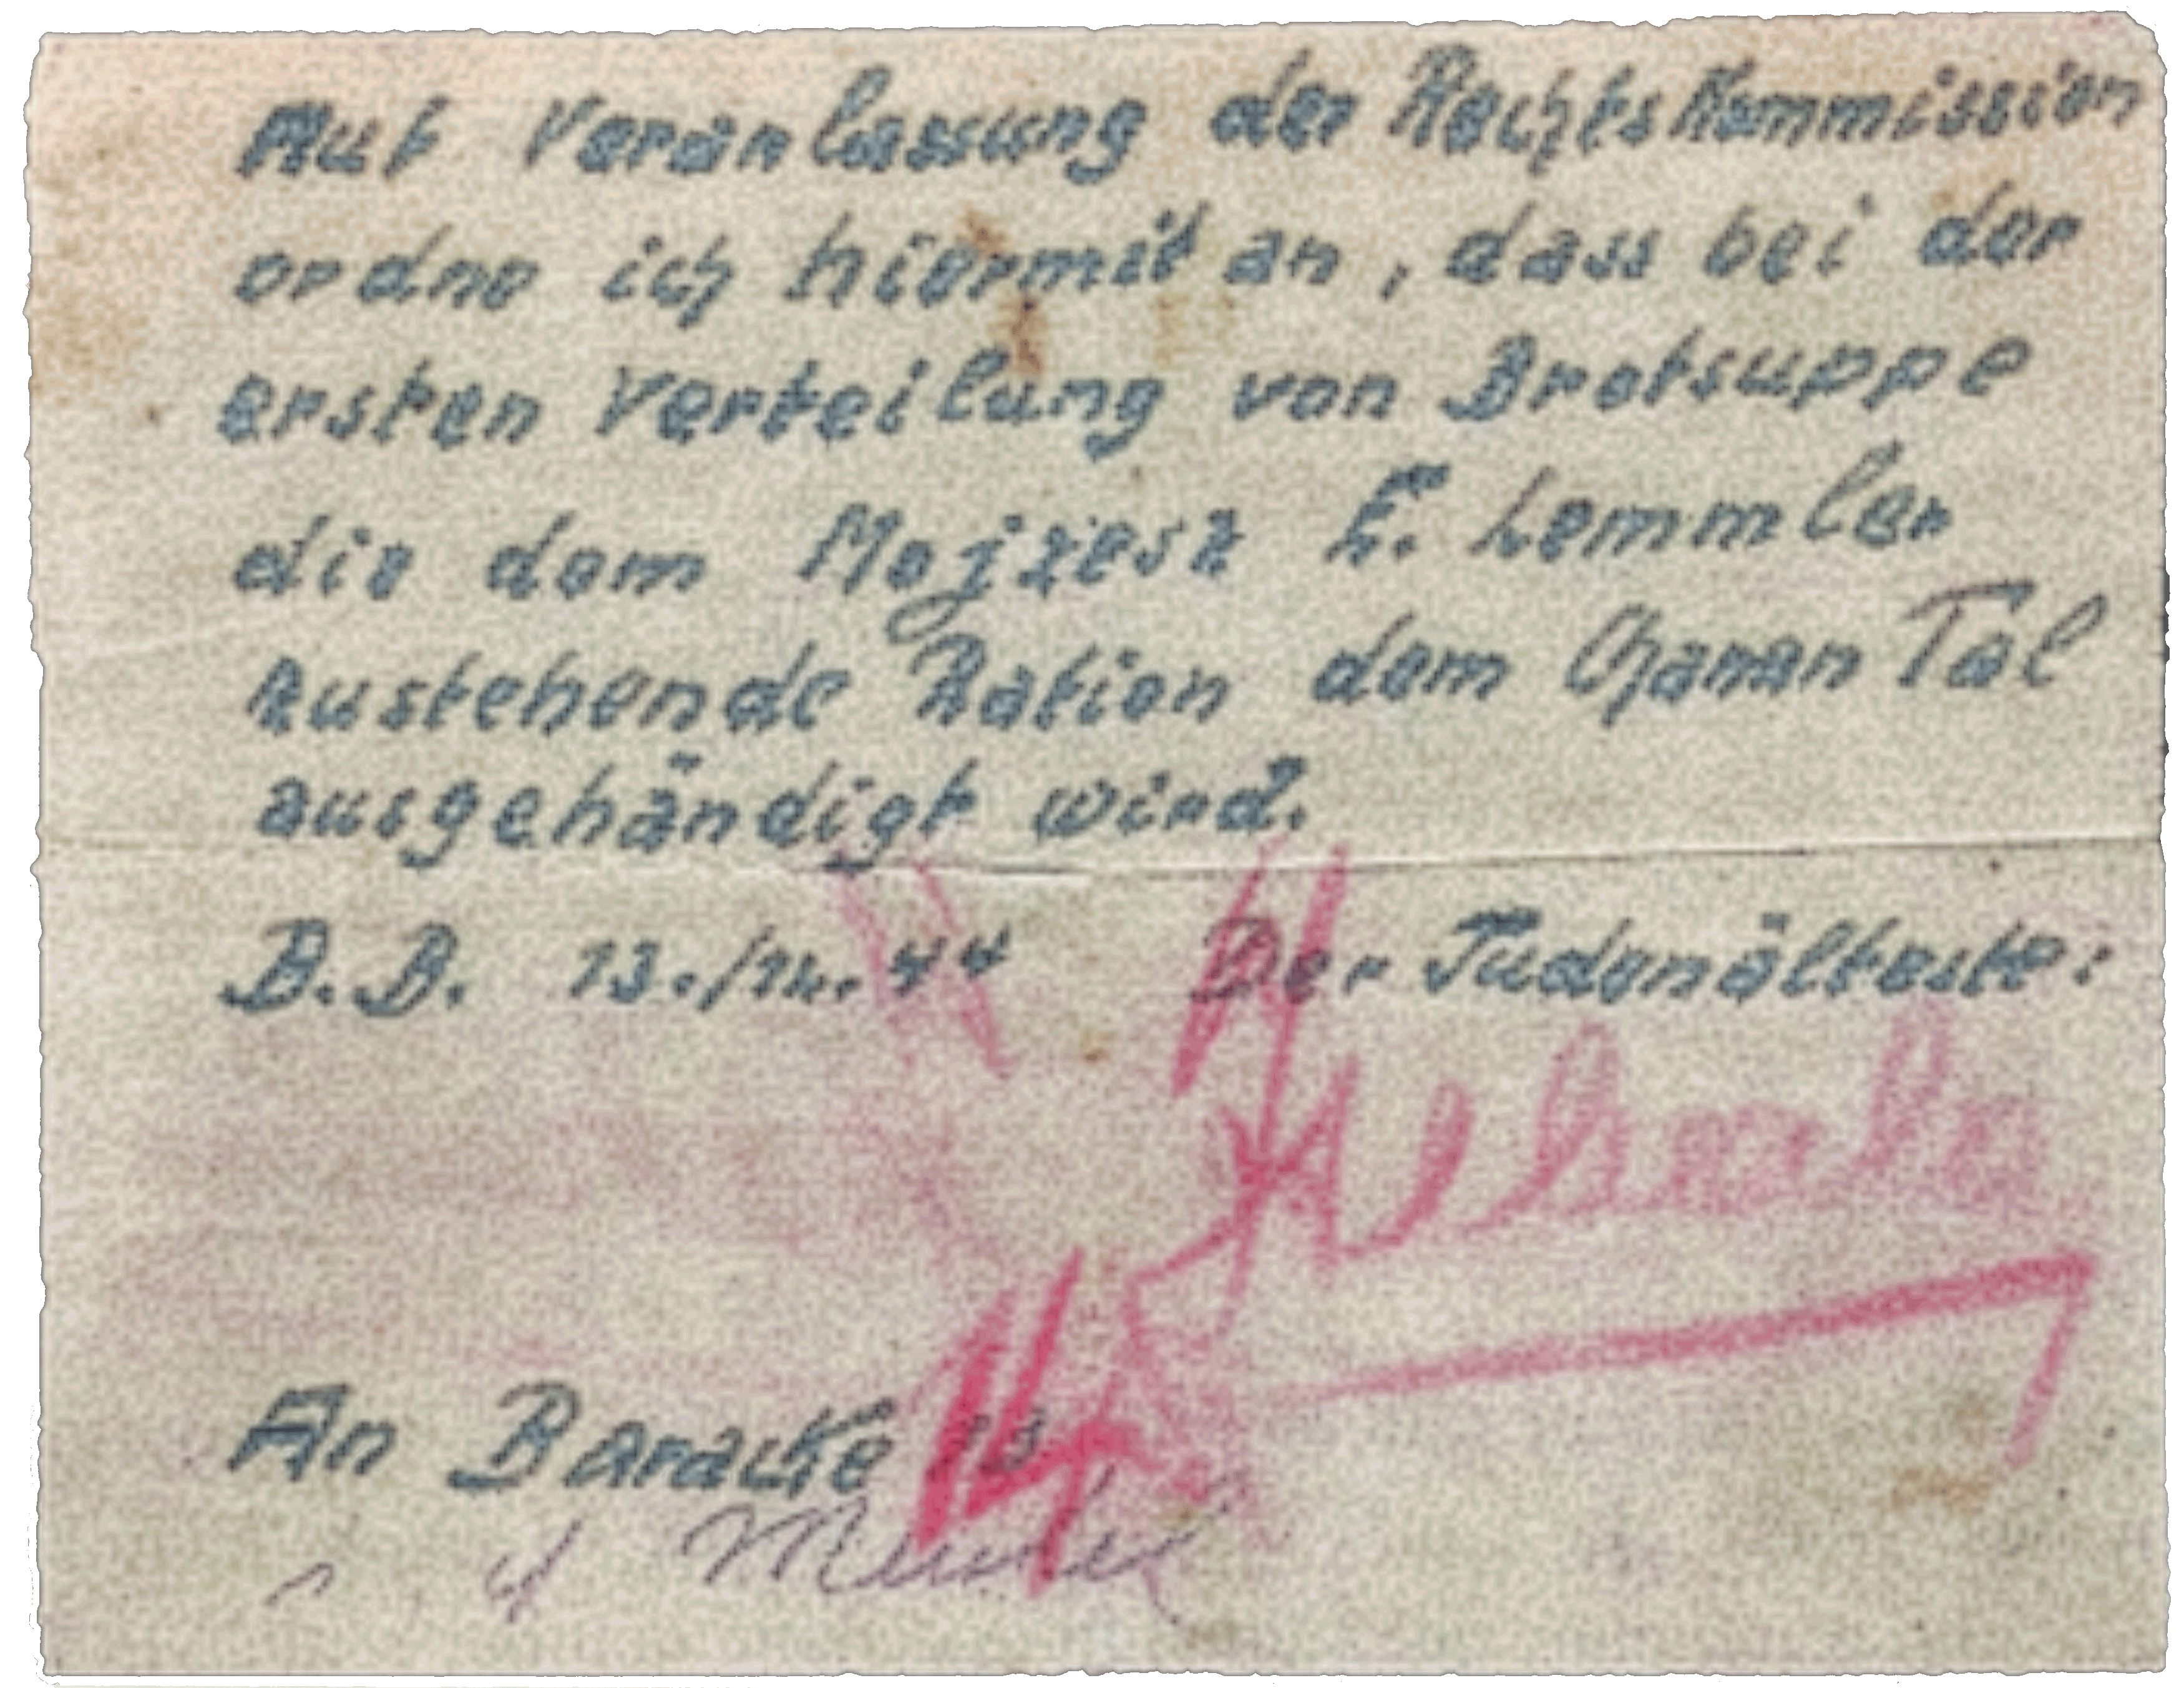 Auf Veranlassung der Rechtskommission
ordne ich hiermit an, dass bei der
ersten Verteilung von Brotsuppe
die dem Mojzesz E. Lemmler
zustehende Ration dem Chanan Tal
ausgehändigt wird.
B.B. 13./12.44 Der Judenälteste:
An Baracke 13